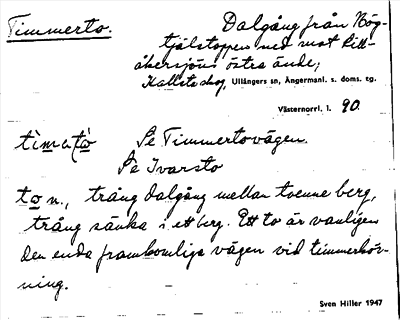 Timmerto.
Dalgång från Hög-
tjälstoppen ned mot Lill-
åkersjöns östra ände;
Kallsta skog, Ullångers sn, Ångermanl. s. doms. tg.
Västernorrl. l. 90.
Se Timmertovägen.
Se Ivarsto
to n., trång dalgång mellan tvenne berg,
trång sänka i ett berg. Ett to är vanligen
den enda framkomliga vägen vid timmerkör-
ning.
Sven Hiller 1947